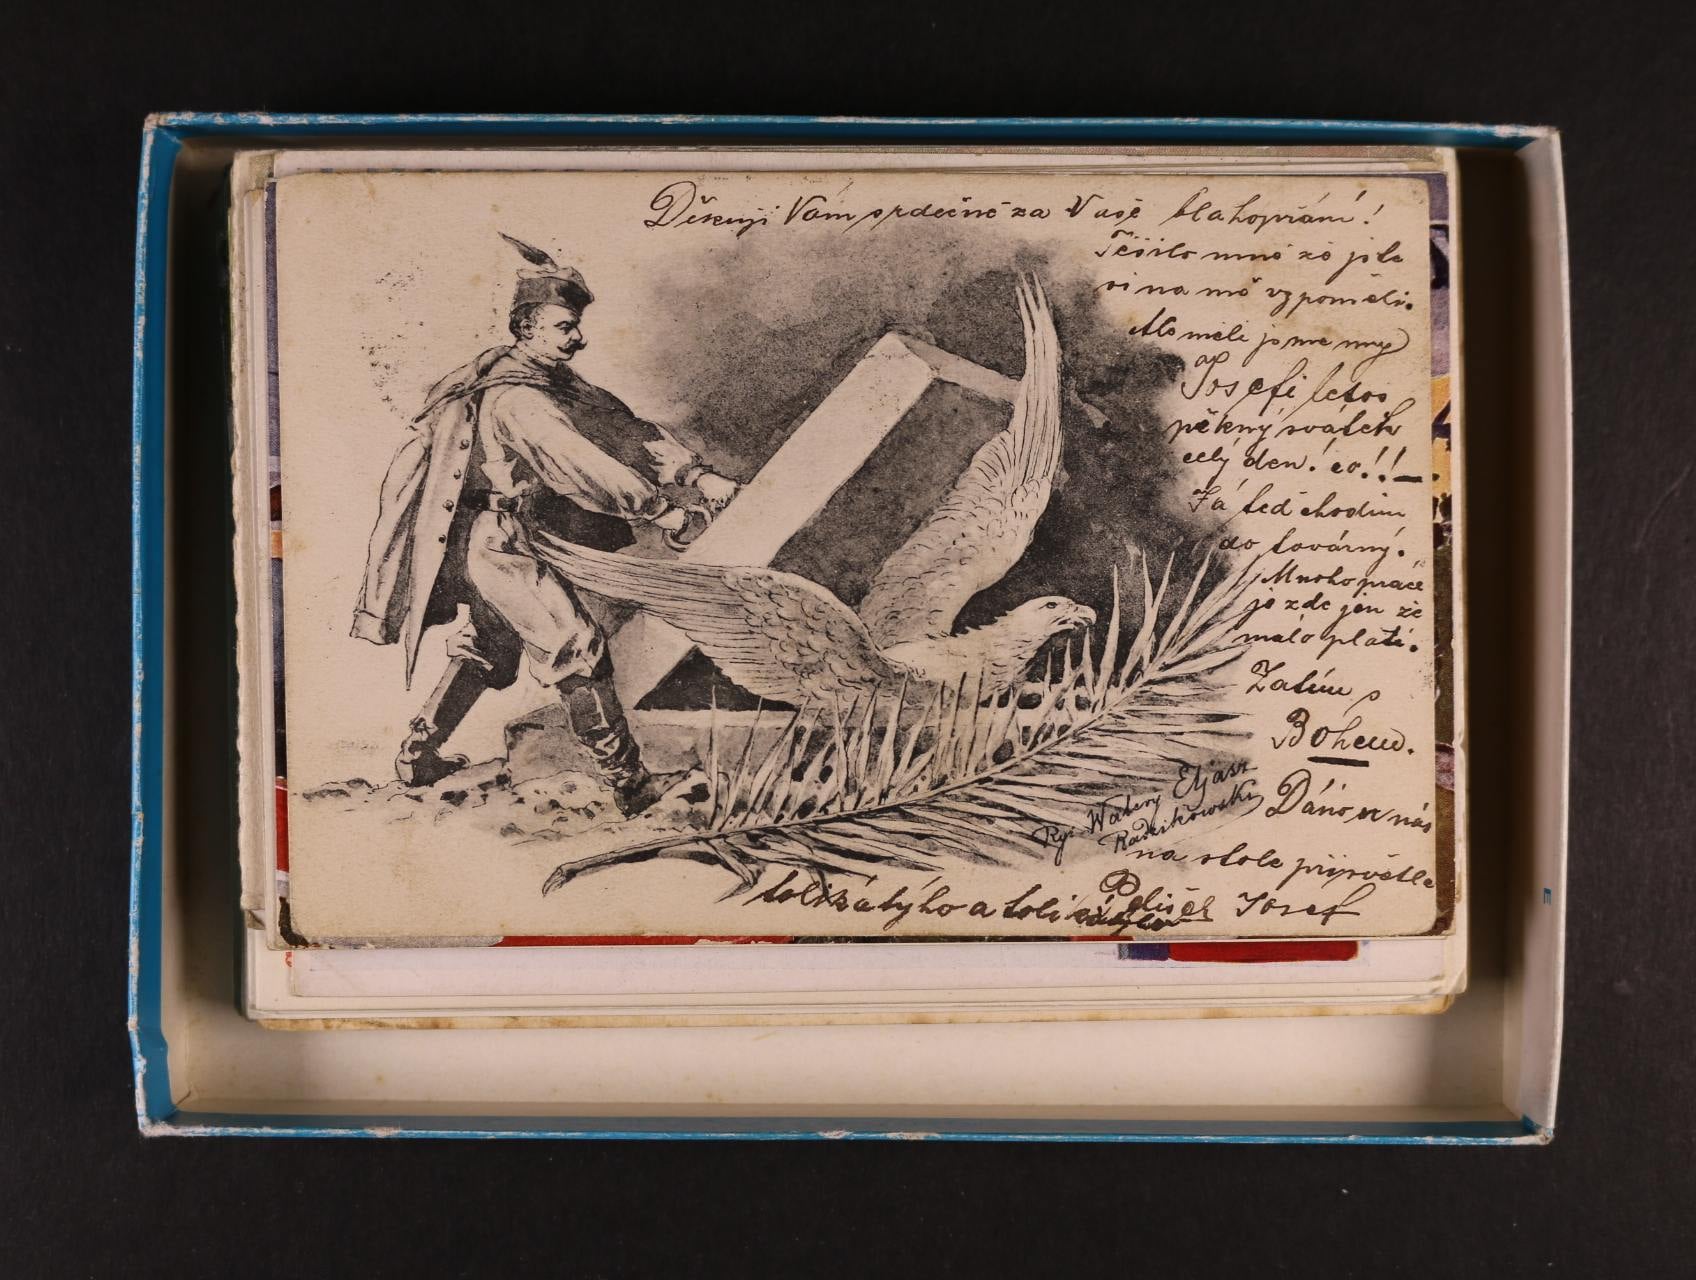 Děkuji Vám srdečně za Vaše blahopřání!
Těšilo mně že jste
si na mě vzpoměli.
Ale měli jsme my
Josefi letos
pěkný svátek
celý den! co!!—
Já teď chodím
do továrny.
Mnoho práce
je zde jen že
málo platí.
Zatím s
Bohem.
Rys Walery Eljasz
Radzikowski
na stole
Josef